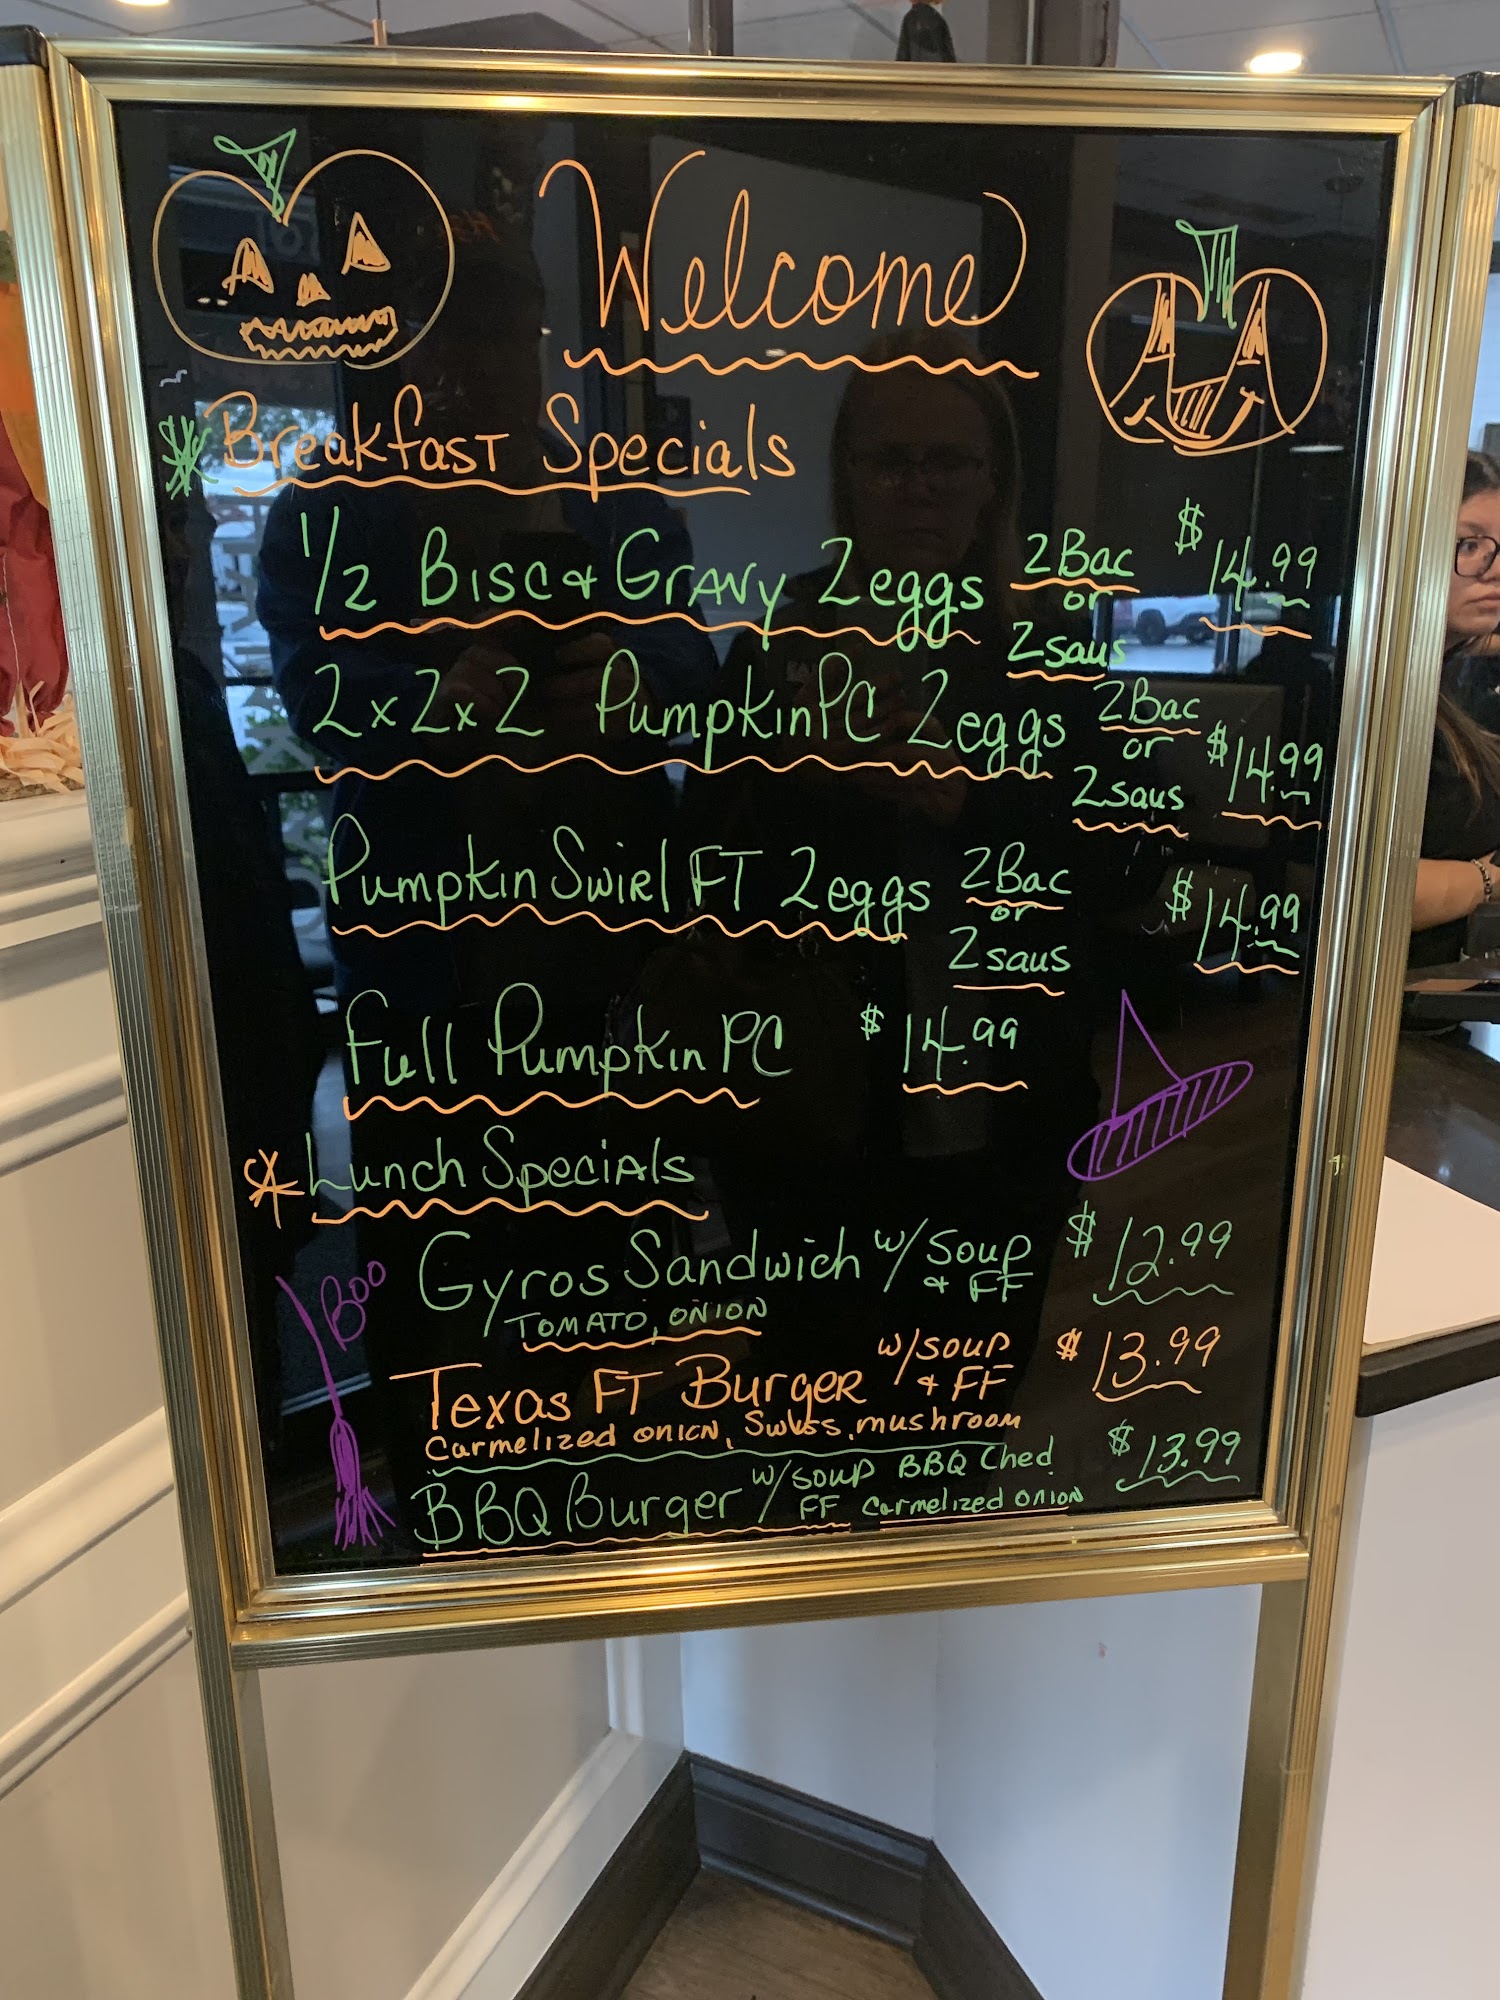 Welcome
Breakfast Specials
1/2 Bisc & Gravy 2 eggs 2 Bac or 2 saus $14.99
2x2x2 Pumpkin PC 2 eggs 2 Bac or 2 saus $14.99
Pumpkin Swirl FT 2 eggs 2 Bac or 2 saus $14.99
Full Pumpkin PC $14.99
Lunch Specials
Boo
Gyros Sandwich w/ soup & FF $12.99
Tomato, onion
Texas FT Burger w/ soup & FF $13.99
Carmelized onion, Swiss, mushroom
BBQ Burger w/ soup FF BBQ Ched Carmelized onion $13.99